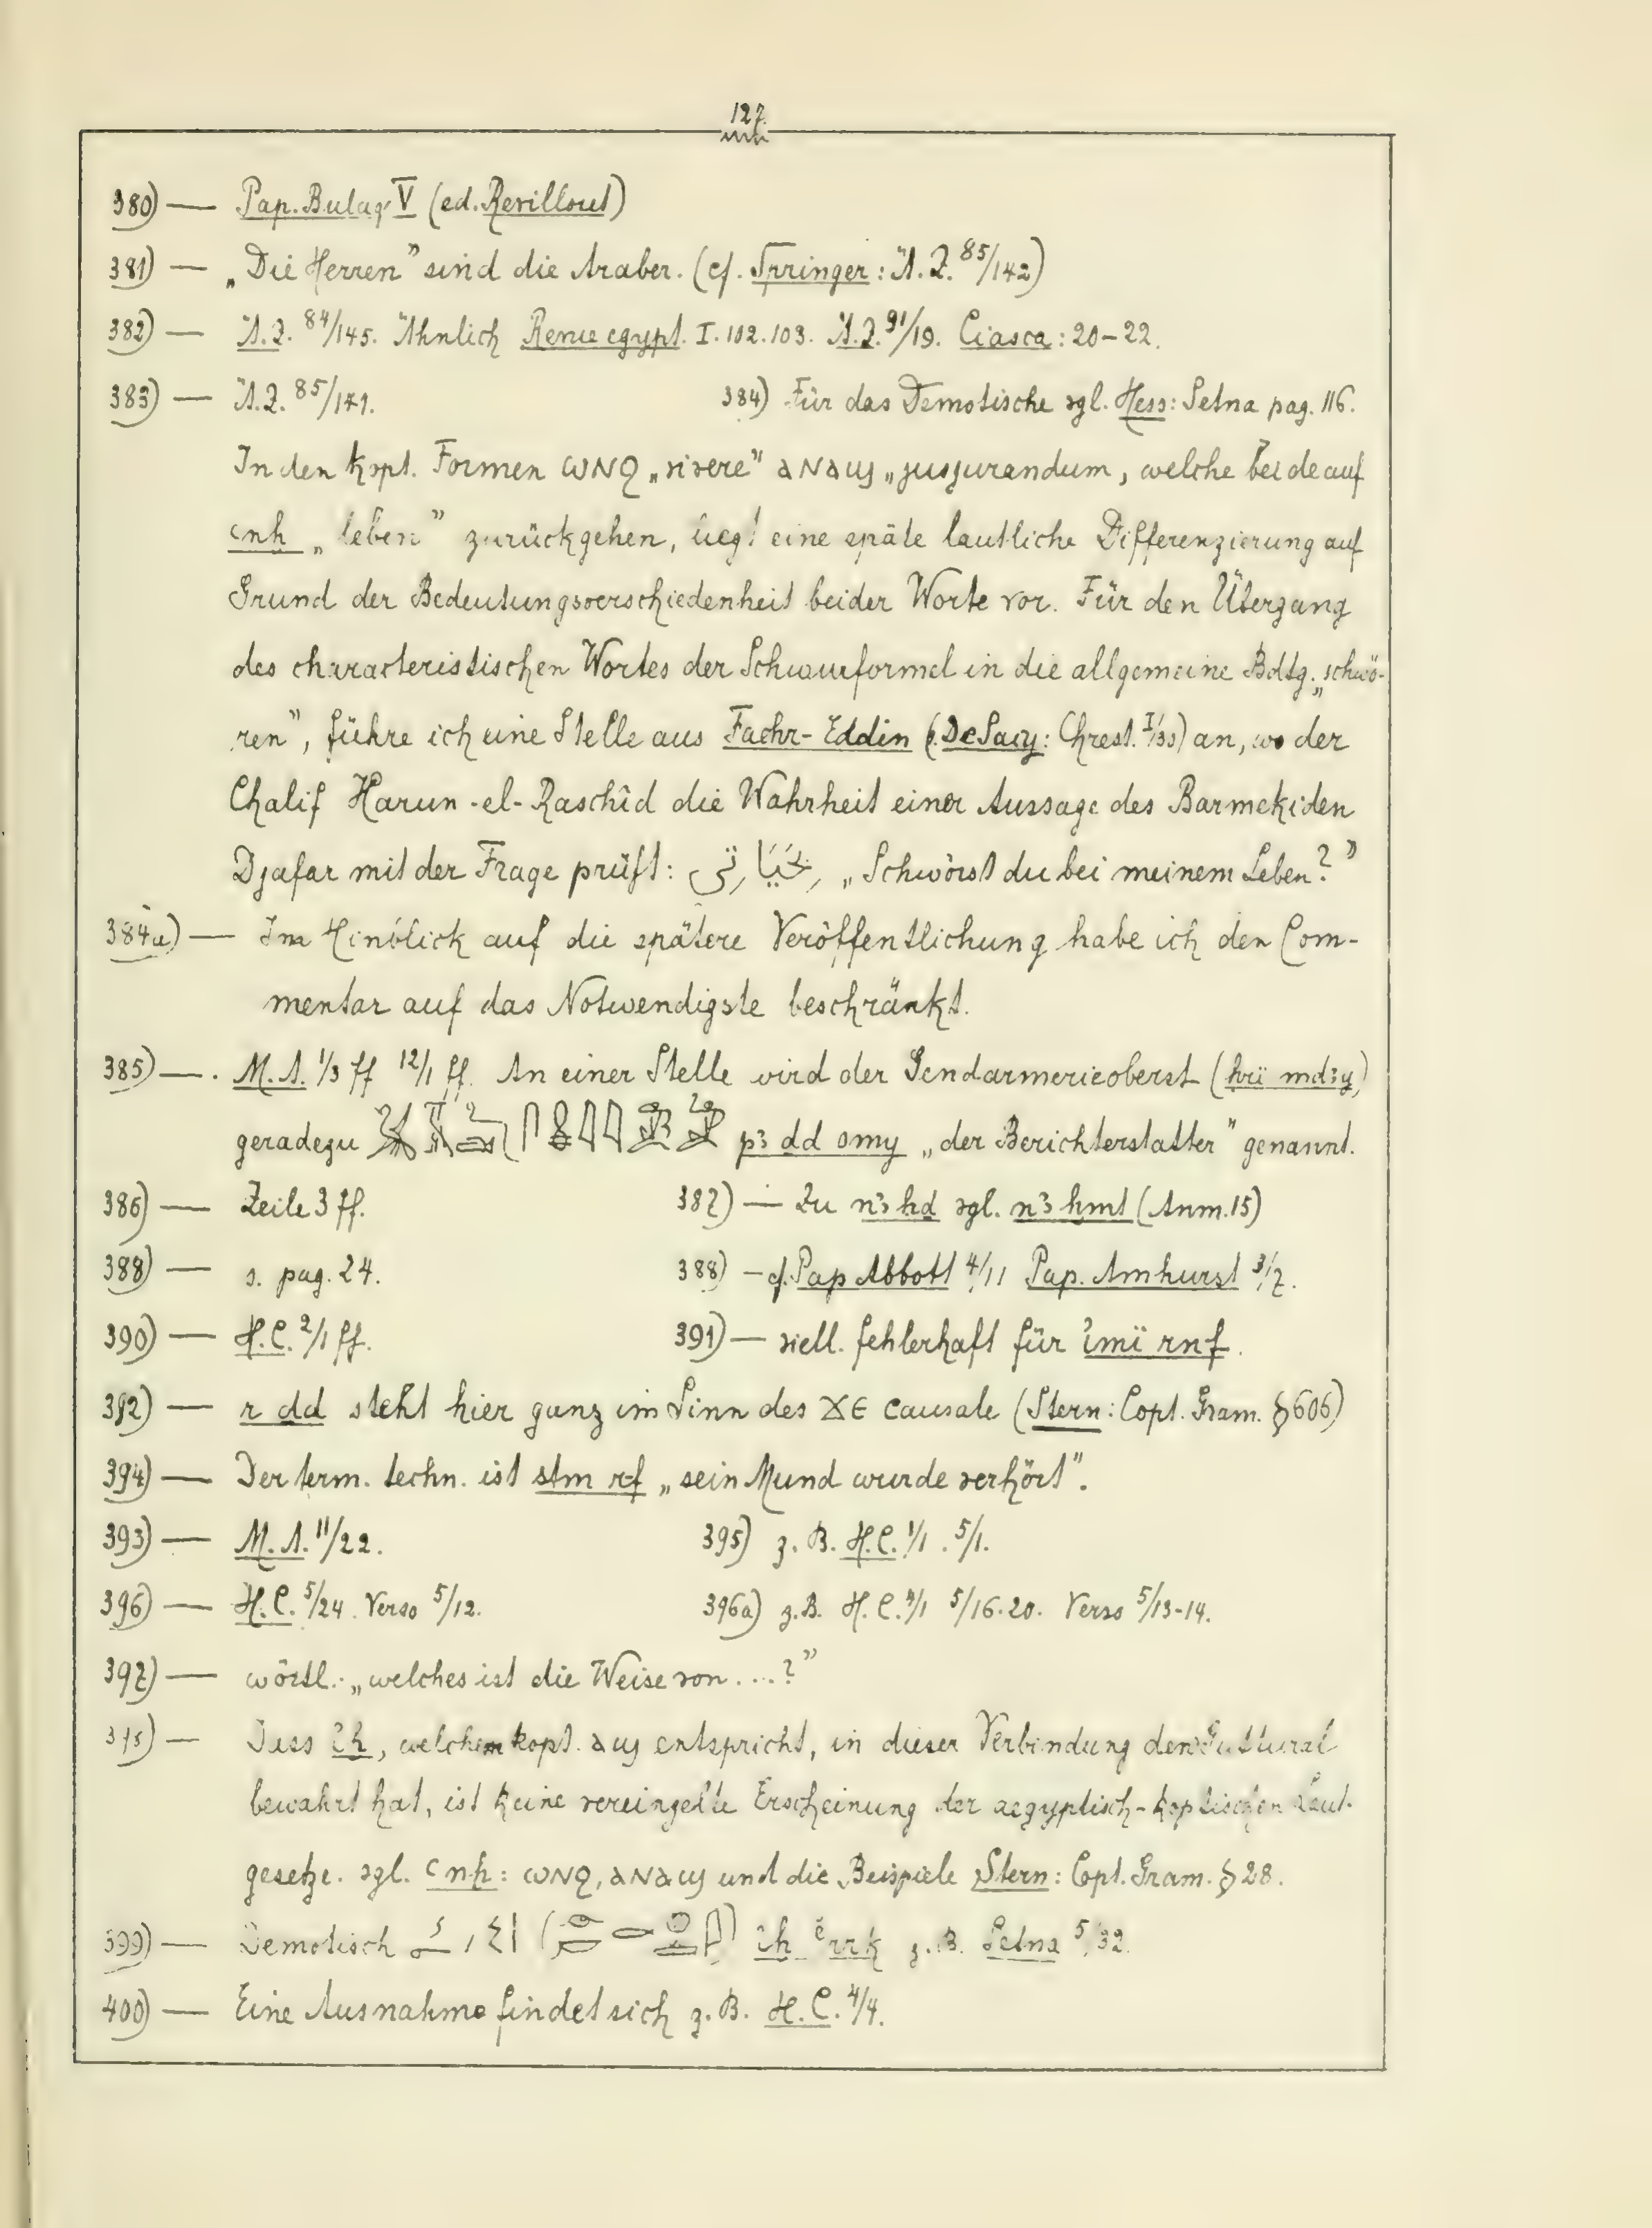 127.
380) — Pap. Bulaq V (ed. Revillout)
381) — „Die Herren” sind die Araber. (cf. Springer: Ä.Z. 85/142)
382) — Ä.Z. 84/145. Ähnlich Revue egypt. I. 102. 103. Ä.Z. 91/19. Ciasca: 20-22.
383) — Ä.Z. 85/141. 384) Für das Demotische vgl. Hess: Setna pag. 116.
In den kopt. Formen ⲱⲛϩ „vivere” ⲁⲛⲁϣ „jusjurandum, welche beide auf
cnḫ „leben” zurückgehen, liegt eine späte lautliche Differenzierung auf
Grund der Bedeutungsverschiedenheit beider Worte vor. Für den Übergang
des characteristischen Wortes der Schwurformel in die allgemeine Bdtg. „schwö-
ren”, führe ich eine Stelle aus Fachr-Eddin (De Sacy: Chrest. I/33) an, wo der
Chalif Harun-el-Raschîd die Wahrheit einer Aussage des Barmekiden
Djafar mit der Frage prüft: „Schwörst du bei meinem Leben?”
384a) — Im Hinblick auf die spätere Veröffentlichung habe ich den Com-
mentar auf das Notwendigste beschränkt.
385) — . M.A. 1/3 ff 12/1 ff. An einer Stelle wird der Gendarmerieoberst (ḥrï mdꜣy)
geradezu pꜣ dd smy „der Berichterstatter” genannt.
386) — Zeile 3 ff. 387) — Zu nꜣ ḥd vgl. nꜣ ḥmt (Anm. 15)
388) — s. pag. 24. 388) — cf. Pap Abbott 4/11 Pap. Amhurst 3/7.
390) — H.C. 2/1 ff. 391) — viell. fehlerhaft für ꜣmï rnf.
392) — r dd steht hier ganz im Sinn des ϫⲉ causale (Stern: Copt. Gram. § 606)
394) — Der term. techn. ist stm r-f „sein Mund wurde verhört”.
393) — M.A. 11/22. 395) z. B. H.C. 1/1. 5/1.
396) — H.C. 5/24. Verso 5/12. 396a) z.B. H.C. 4/1 5/16-20. Verso 5/13-14.
397) — wörtl.: „welches ist die Weise von....?”
Dass ꜣḫ, welchem kopt. ⲁϣ entspricht, in dieser Verbindung den Guttural
bewahrt hat, ist keine vereinzelte Erscheinung der aegyptisch-koptischen Laut-
gesetze. vgl. cnḫ: ⲱⲛϩ, ⲁⲛⲁϣ und die Beispiele Stern: Copt. Gram. § 28.
399) — Demotisch ꜣḫ ĕrrk z.B. Setna 5/32.
400) — Eine Ausnahme findet sich z.B. H.C. 4/4.